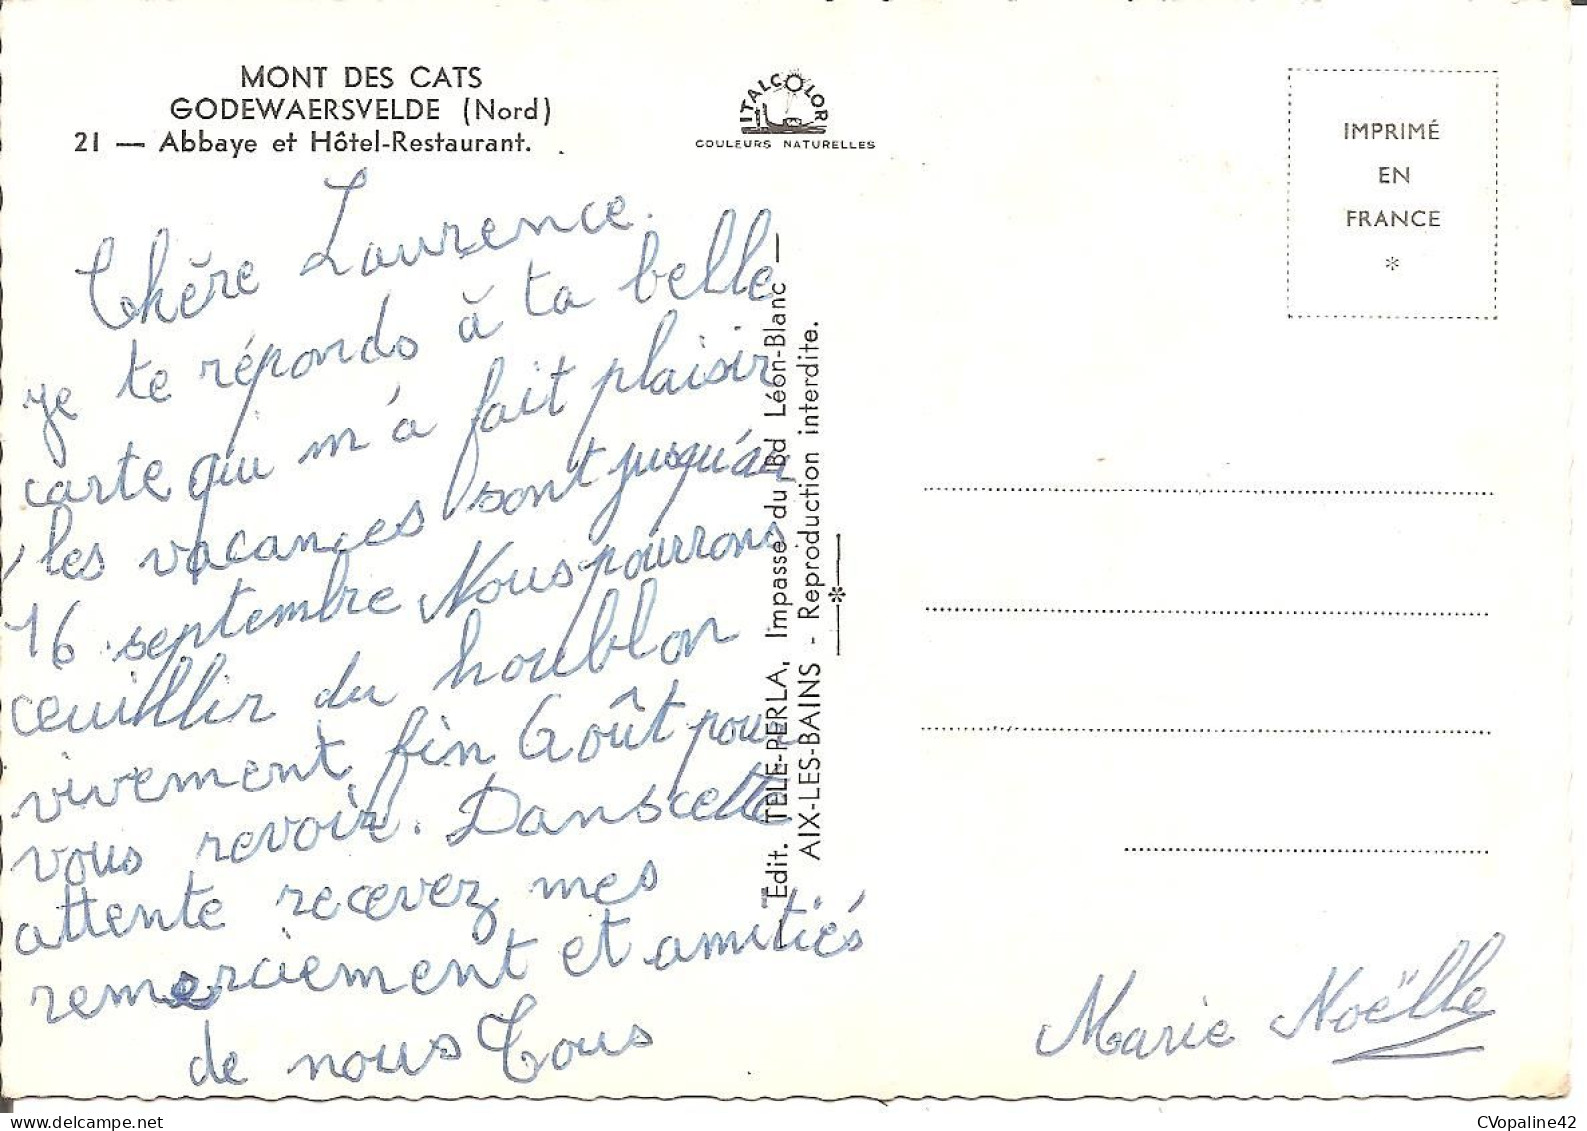 MONT DES CATS
GODEWAERSVELDE (Nord)
21 — Abbaye et Hôtel-Restaurant.
ITALCOLOR
COULEURS NATURELLES
IMPRIMÉ
EN
FRANCE
*
Chère Laurence.
je te réponds à ta belle
carte qui m'a fait plaisir
les vacances sont jusqu'au
16 septembre Nous pourrons
ceuillir du houblon
vivement fin Goût pour
vous revoir. Dans cette
attente recevez mes
remerciement et amitiés
de nous Tous
Marie Noëlle
— Edit. TELE-PERLA, Impasse du Bd Léon-Blanc —
AIX-LES-BAINS - Reproduction interdite.
CVopaline42